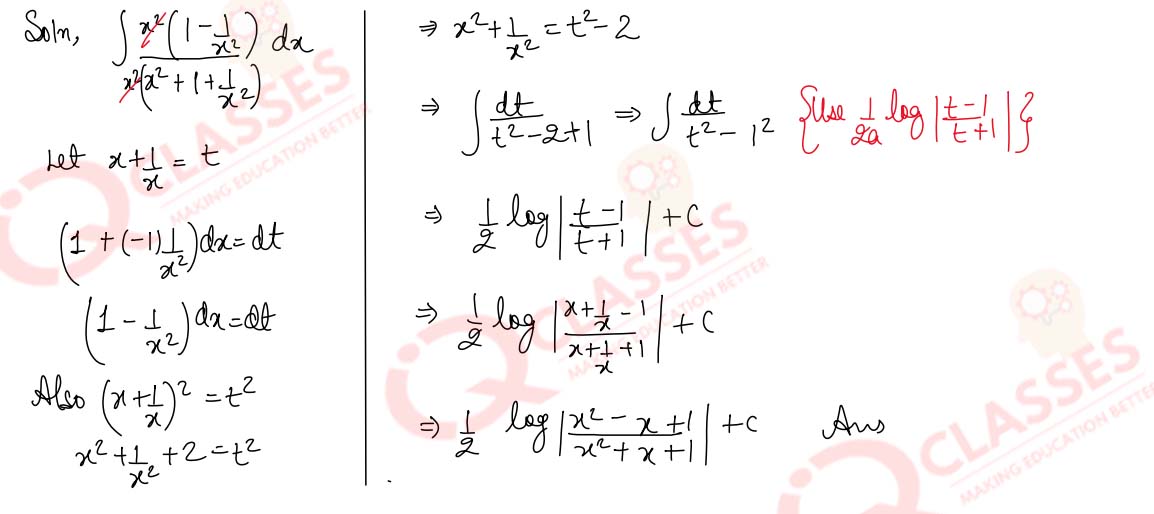 Soln, ∫ x²(1 - 1/x²) dx / x²(x² + 1 + 1/x²)
Let x + 1/x = t
(1 + (-1) 1/x²) dx = dt
(1 - 1/x²) dx = dt
Also (x + 1/x)² = t²
x² + 1/x² + 2 = t²
⇒ x² + 1/x² = t² - 2
⇒ ∫ dt/(t² - 2 + 1) ⇒ ∫ dt/(t² - 1²) {Use 1/2a log |(t-1)/(t+1)|}
⇒ 1/2 log |(t-1)/(t+1)| + C
⇒ 1/2 log |(x + 1/x - 1)/(x + 1/x + 1)| + C
⇒ 1/2 log |(x² - x + 1)/(x² + x + 1)| + C Ans
IQ CLASSES
MAKING EDUCATION BETTER
IQ CLASSES
MAKING EDUCATION BETTER
IQ CLASSES
MAKING EDUCATION BETTER